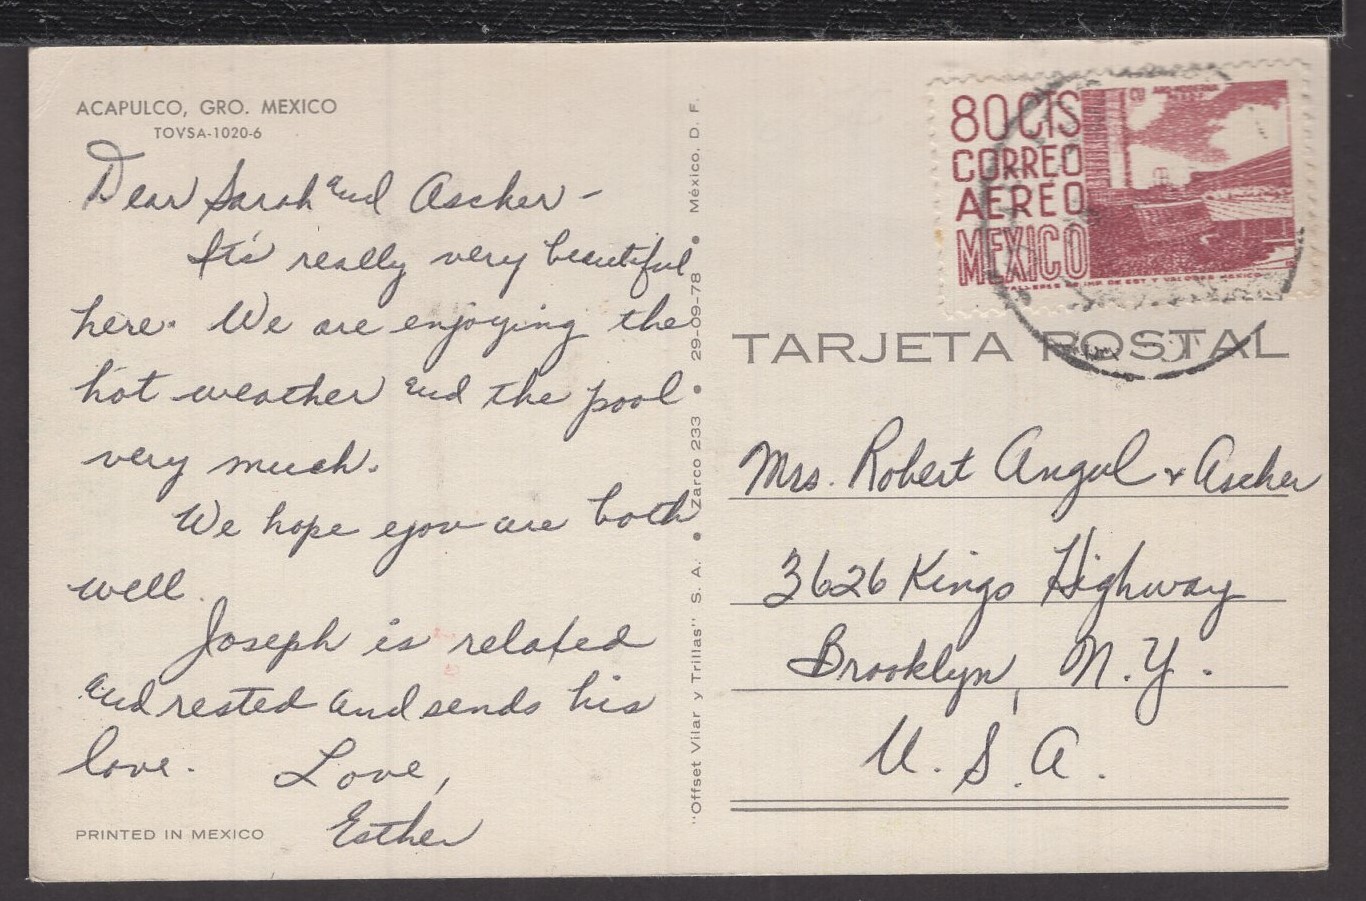 ACAPULCO, GRO. MEXICO
TOVSA-1020-6
Dear Sarah and Ascher -
It's really very beautiful
here. We are enjoying the
hot weather and the pool
very much.
We hope you are both
well.
Joseph is relafed
and rested and sends his
love. Love,
Esther
PRINTED IN MEXICO
"Offset Vilar y Trillas" S. A. • Zarco 233 • 29-09-78 • México, D. F.
80 CTS
CORREO
AEREO
MEXICO
CU ARQ. MODERNA
TALLERES DE IMP. DE EST. Y VALORES MEXICO
TARJETA POSTAL
Mrs. Robert Angul & Ascher
3626 Kings Highway
Brooklyn, N.Y.
U.S.A.